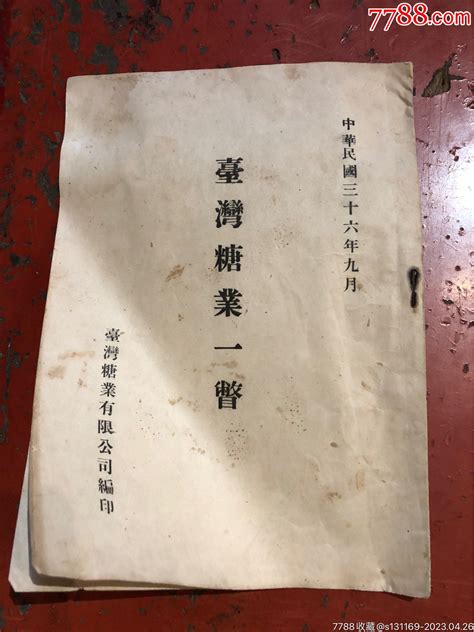 7788.com
中華民國三十六年九月
臺灣糖業一瞥
臺灣糖業有限公司編印
7788收藏@s131169-2023.04.26